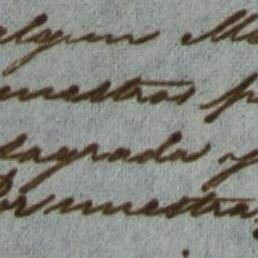 algun
nuestras
sagrada y
Por nuestra